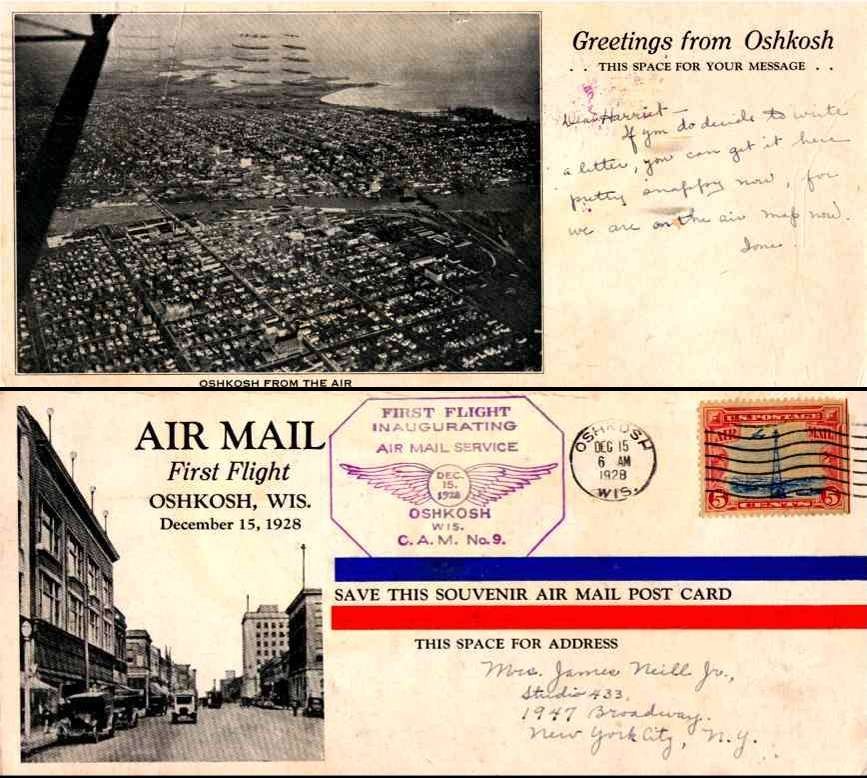 Greetings from Oshkosh
. . THIS SPACE FOR YOUR MESSAGE . .
Dear Harriet—
If you do decide to write
a letter, you can get it here
pretty snappy now, for
we are on the air map now.
OSHKOSH FROM THE AIR
AIR MAIL
First Flight
OSHKOSH, WIS.
December 15, 1928
FIRST FLIGHT
INAUGURATING
AIR MAIL SERVICE
DEC.
15.
1928
OSHKOSH
WIS.
C. A. M. No. 9.
OSHKOSH
DEC 15
6 AM
1928
WIS.
U.S. POSTAGE
AIR MAIL
5 CENTS 5
SAVE THIS SOUVENIR AIR MAIL POST CARD
THIS SPACE FOR ADDRESS
Mrs. James Neill Jr.,
Studio 433.
1947 Broadway.
New York City, N.Y.